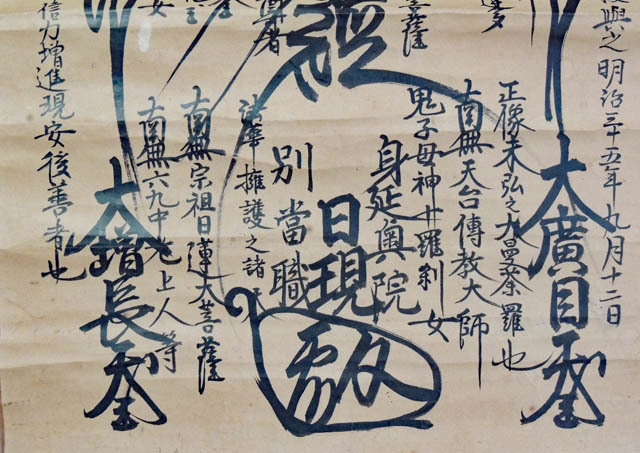 與之明治三十五年九月十二日
大廣目天
正像未弘之大曼荼羅也
南無天台傳教大師
鬼子母神 羅刹女
身延奧院
日現
別當職
法華擁護之諸
南無宗祖日蓮大菩薩
南無六九中老上人等
大增長天
信力增進現安後善者也
菩薩
尊者
女